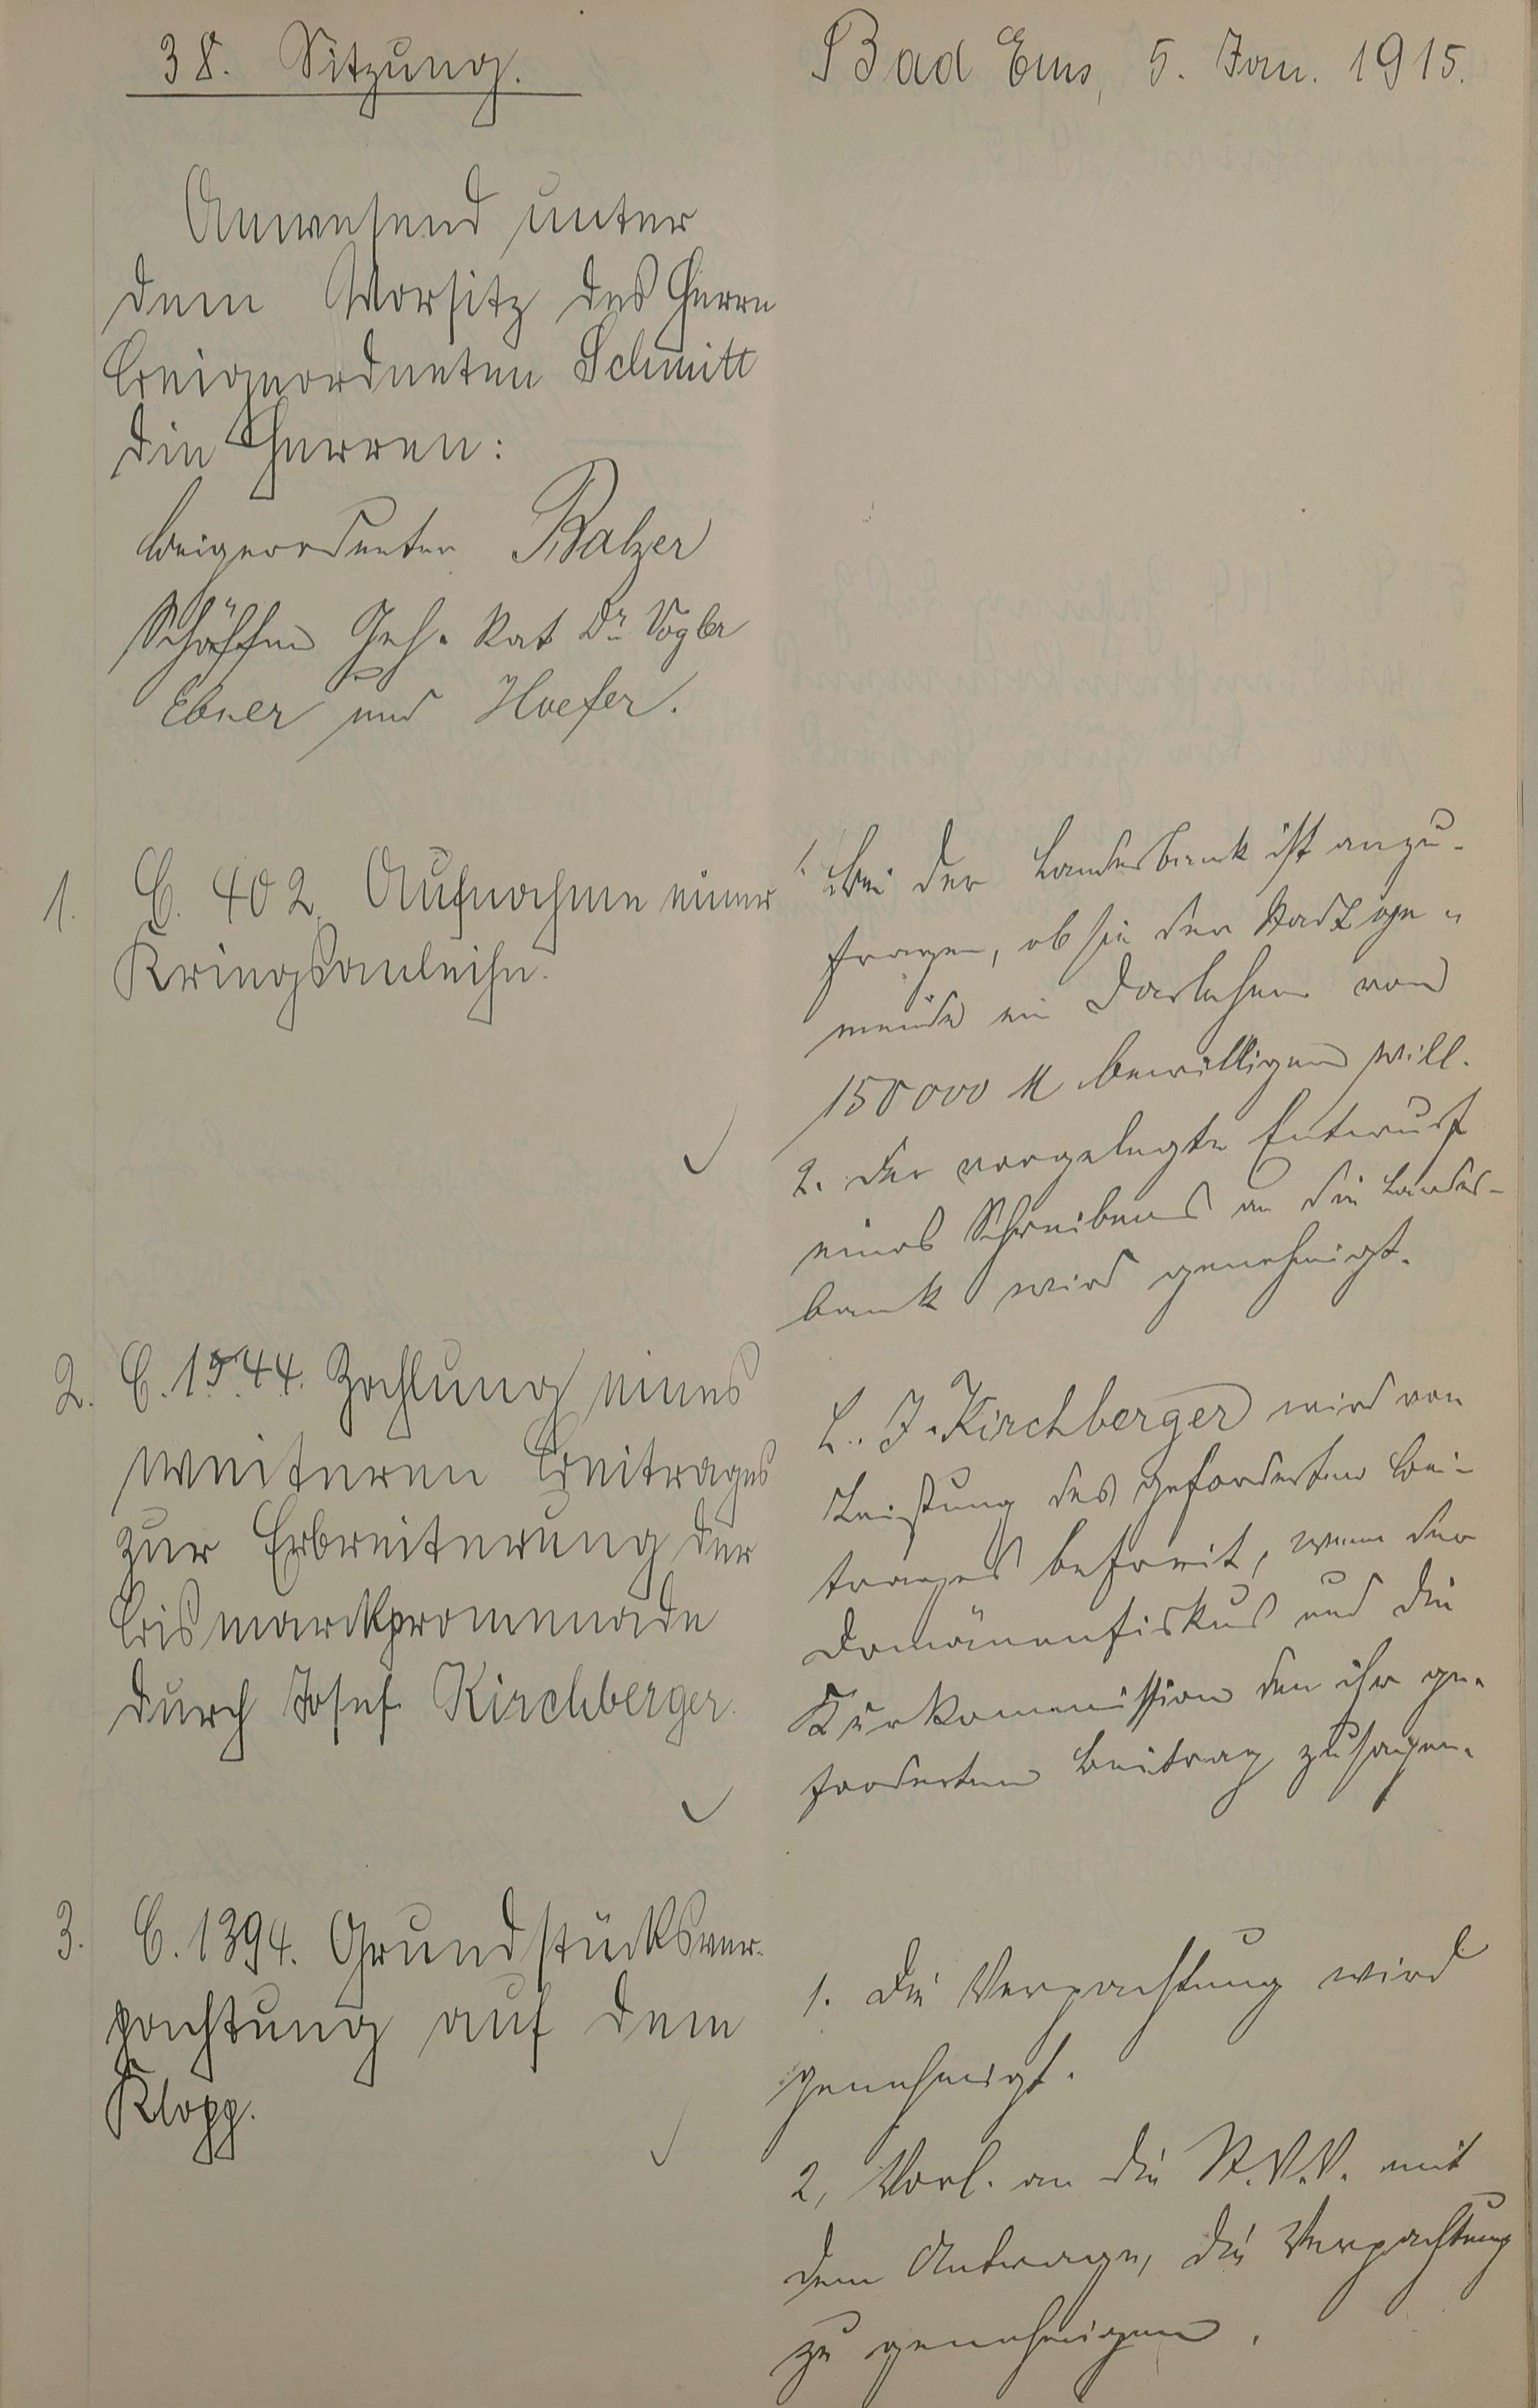 38. Sitzung.
Bad Ems, 5. Jan. 1915.
Anwesend unter
dem Vorsitz des Herrn
Beigeordneten Schmitt
die Herren:
Beigeordneter Balzer
Schöffen Geh. Rat Dr. Vogler
Ebner und Hoefer.
1. C. 402. Aufnahme einer
Kriegsanleihe.
1. Bei der Landesbank ist anzu-
fragen, ob sie der Stadtge-
meinde ein Darlehen von
150000 M bewilligen will.
2. Der vorgelegte Entwurf
eines Schreibens an die Landes-
bank wird genehmigt.
2. C. 1544. Zahlung eines
weiteren Beitrages
zur Erbreiterung der
Bismarckpromenade
durch Josef Kirchberger.
L. J. Kirchberger wird von
Leistung des geforderten Bei-
trages befreit, wenn der
Domänenfiskus und die
Kurkommission den ihr ge-
forderten Beitrag zusagen.
3. C. 1394. Grundstücksver-
pachtung auf dem
Klopp.
1. Die Verpachtung wird
genehmigt.
2, Vorl. an die St.V.V. mit
dem Antrage, die Verpachtung
zu genehmigen.